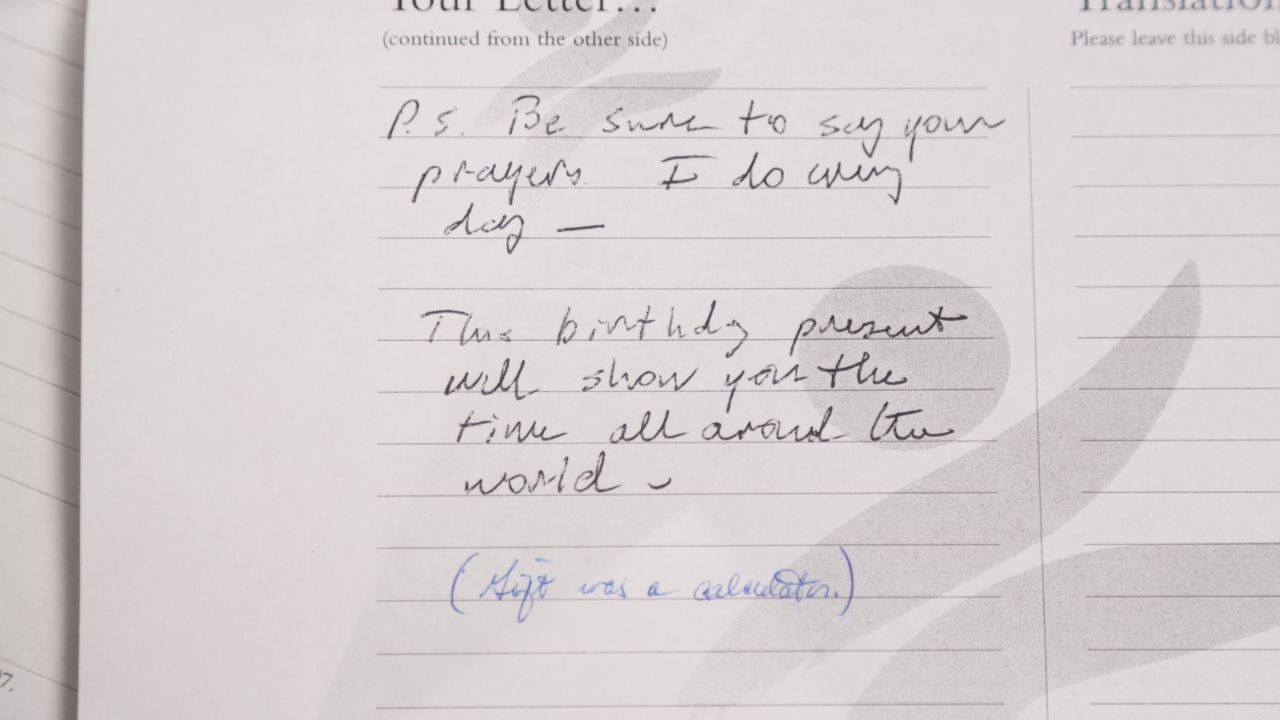 Your Letter...
(continued from the other side)
Translation
Please leave this side bl
P.S. Be sure to say your
prayers. I do every
day —
This birthday present
will show you the
time all around the
world
(Gift was a calculator.)
7.